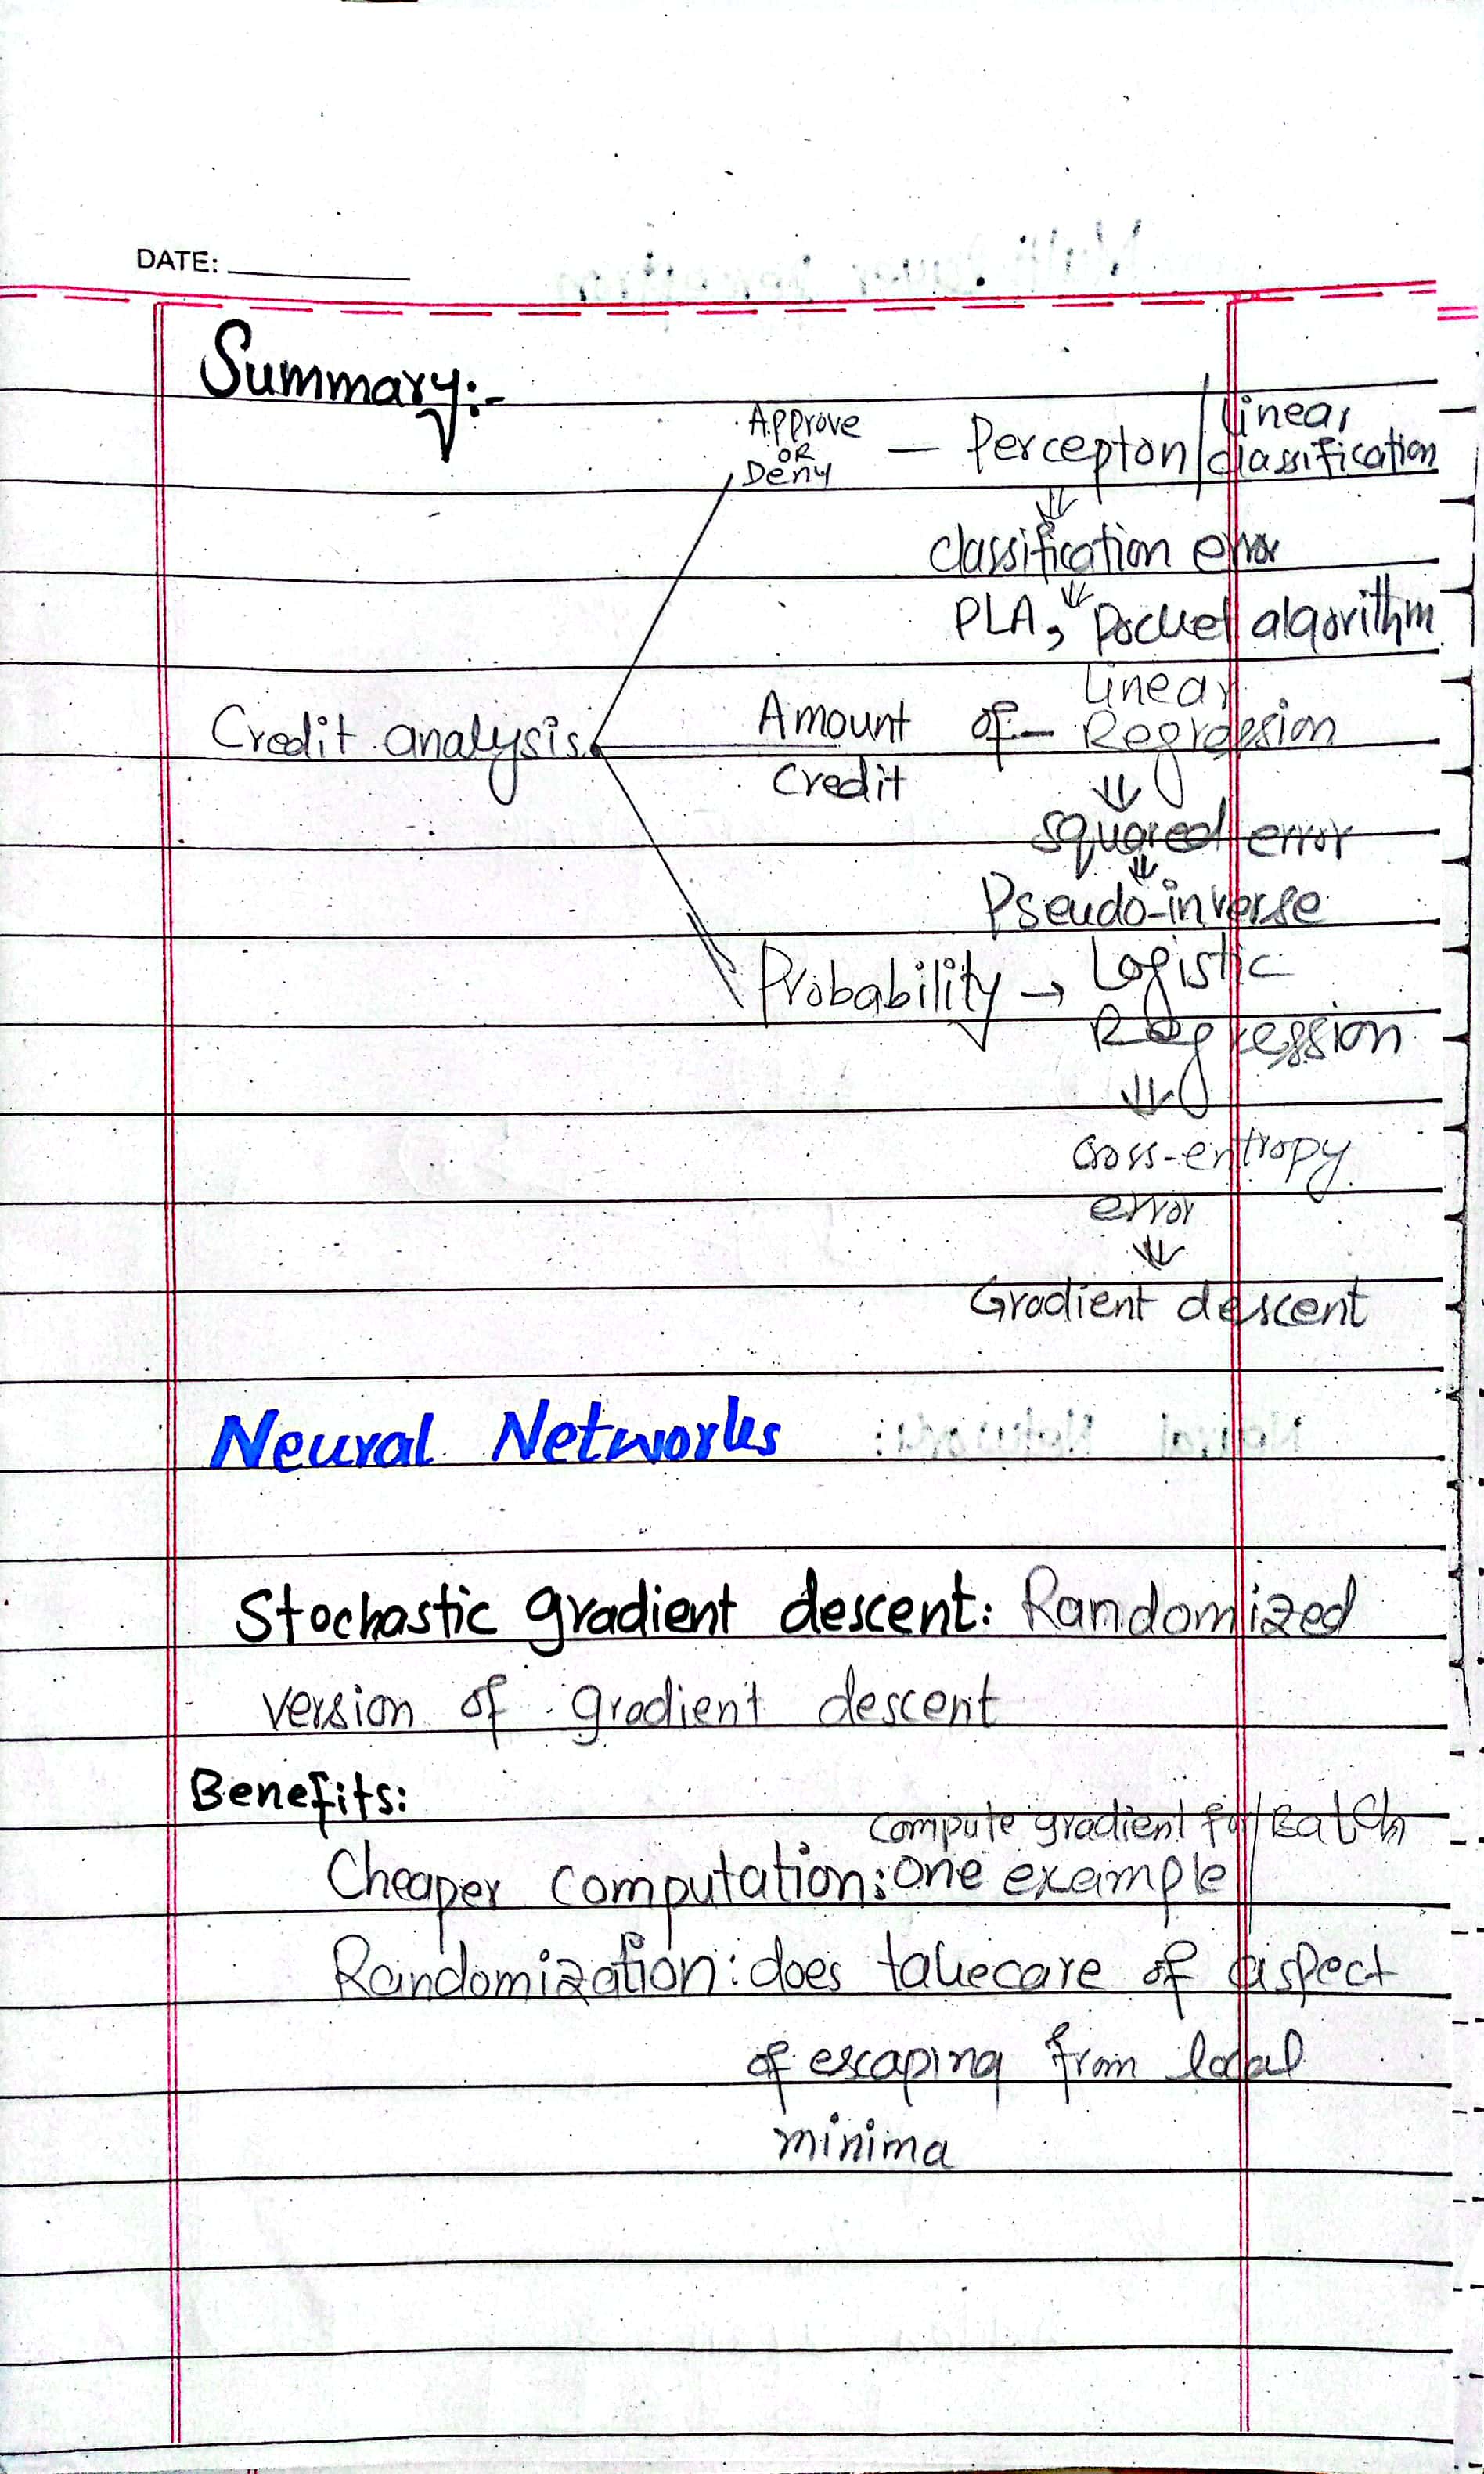 DATE:
Summary:-
Approve
OR
Deny
— Percepton / Linear
classification
⇓
classification error
⇓
PLA, Pocket algorithm
Credit analysis
Amount of — Linear
Credit
Regression
⇓
squared error
⇓
Pseudo-inverse
Probability → Logistic
Regression
⇓
cross-entropy
error
⇓
Gradient descent
Neural Networks
Stochastic gradient descent: Randomized
version of gradient descent
Benefits:
compute gradient for / Batch
Cheaper computation: one example
Randomization: does takecare of aspect
of escaping from local
minima